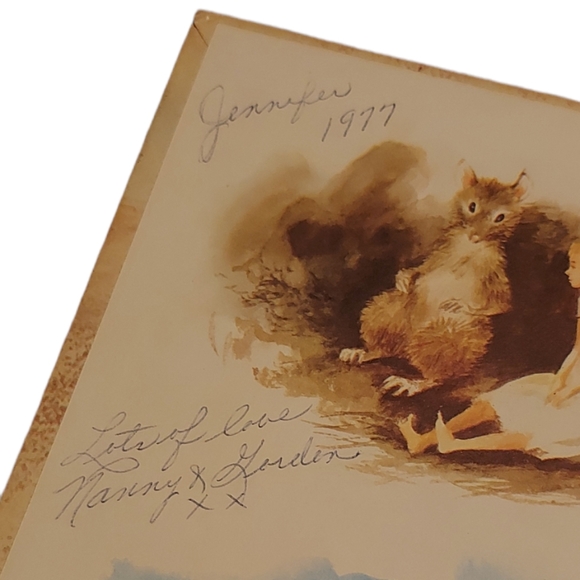 Jennifer
1977
Lots of love
Nanny & Gorden
x x